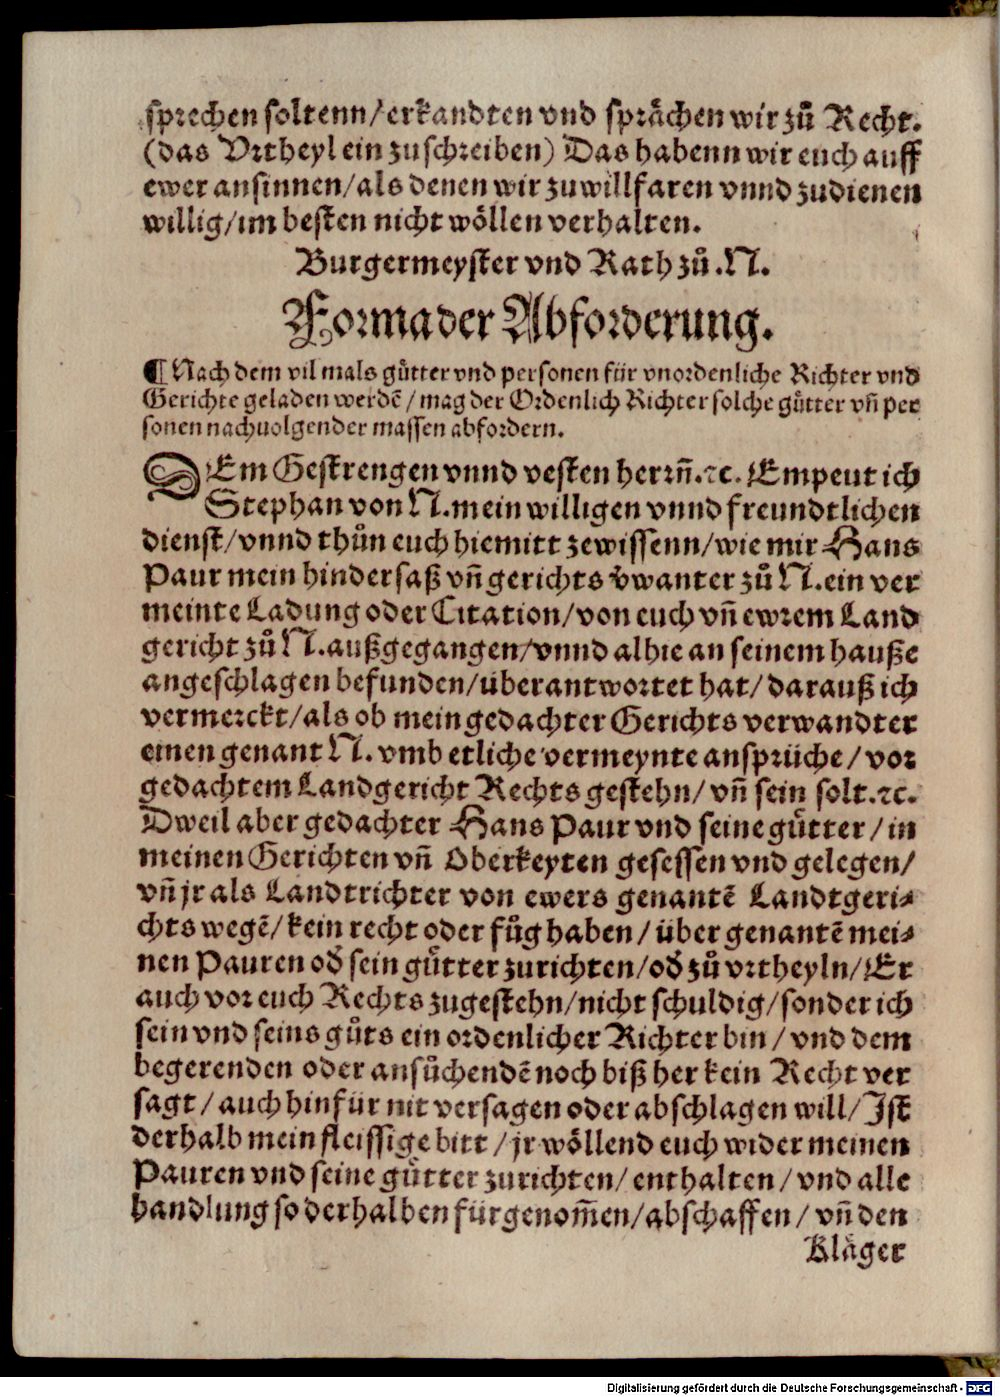 sprechen soltenn/erkandten vnd sprächen wir zů Recht.
(das Vrtheyl ein zuschreiben) Das habenn wir euch auff
ewer ansinnen/als denen wir zuwillfaren vnnd zudienen
willig/im besten nicht wöllen verhalten.
Burgermeyster vnd Rath zů .N.
Forma der Abforderung.
¶ Nach dem vil mals gůtter vnd personen für vnordenliche Richter vnd
Gerichte geladen werdẽ/mag der Ordenlich Richter solche gůtter vñ per
sonen nachuolgender massen abfordern.
DEm Gestrengen vnnd vesten herrñ.ꝛc. Empeut ich
Stephan von N. mein willigen vnnd freundtlichen
dienst/vnnd thůn euch hiemitt zewissenn/wie mir Hans
Paur mein hindersaß vñ gerichts v̈wanter zů N. ein ver
meinte Ladung oder Citation/von euch vñ ewrem Land
gericht zů N. außgegangen/vnnd alhie an seinem hauße
angeschlagen befunden/überantwortet hat/darauß ich
vermerckt/als ob mein gedachter Gerichts verwandter
einen genant N. vmb etliche vermeynte ansprüche/vor
gedachtem Landgericht Rechts gestehn/vñ sein solt.ꝛc.
Dweil aber gedachter Hans Paur vnd seine gůtter/in
meinen Gerichten vñ Oberkeyten gesessen vnd gelegen/
vñ jr als Landtrichter von ewers genantẽ Landtgeri⸗
chts wegẽ/kein recht oder fůg haben/über genantẽ mei⸗
nen Pauren oď sein gůtter zurichten/oď zů vrtheyln/Er
auch vor euch Rechts zugestehn/nicht schuldig/sonder ich
sein vnd seins gůts ein ordenlicher Richter bin/vnd dem
begerenden oder ansůchendẽ noch biß her kein Recht ver
sagt/auch hinfür nit versagen oder abschlagen will/Ist
derhalb mein fleissige bitt/jr wöllend euch wider meinen
Pauren vnd seine gůtter zurichten/enthalten/vnd alle
handlung so derhalben fürgenom̃en/abschaffen/vñ den
Kläger
Digitalisierung gefördert durch die Deutsche Forschungsgemeinschaft - DFG